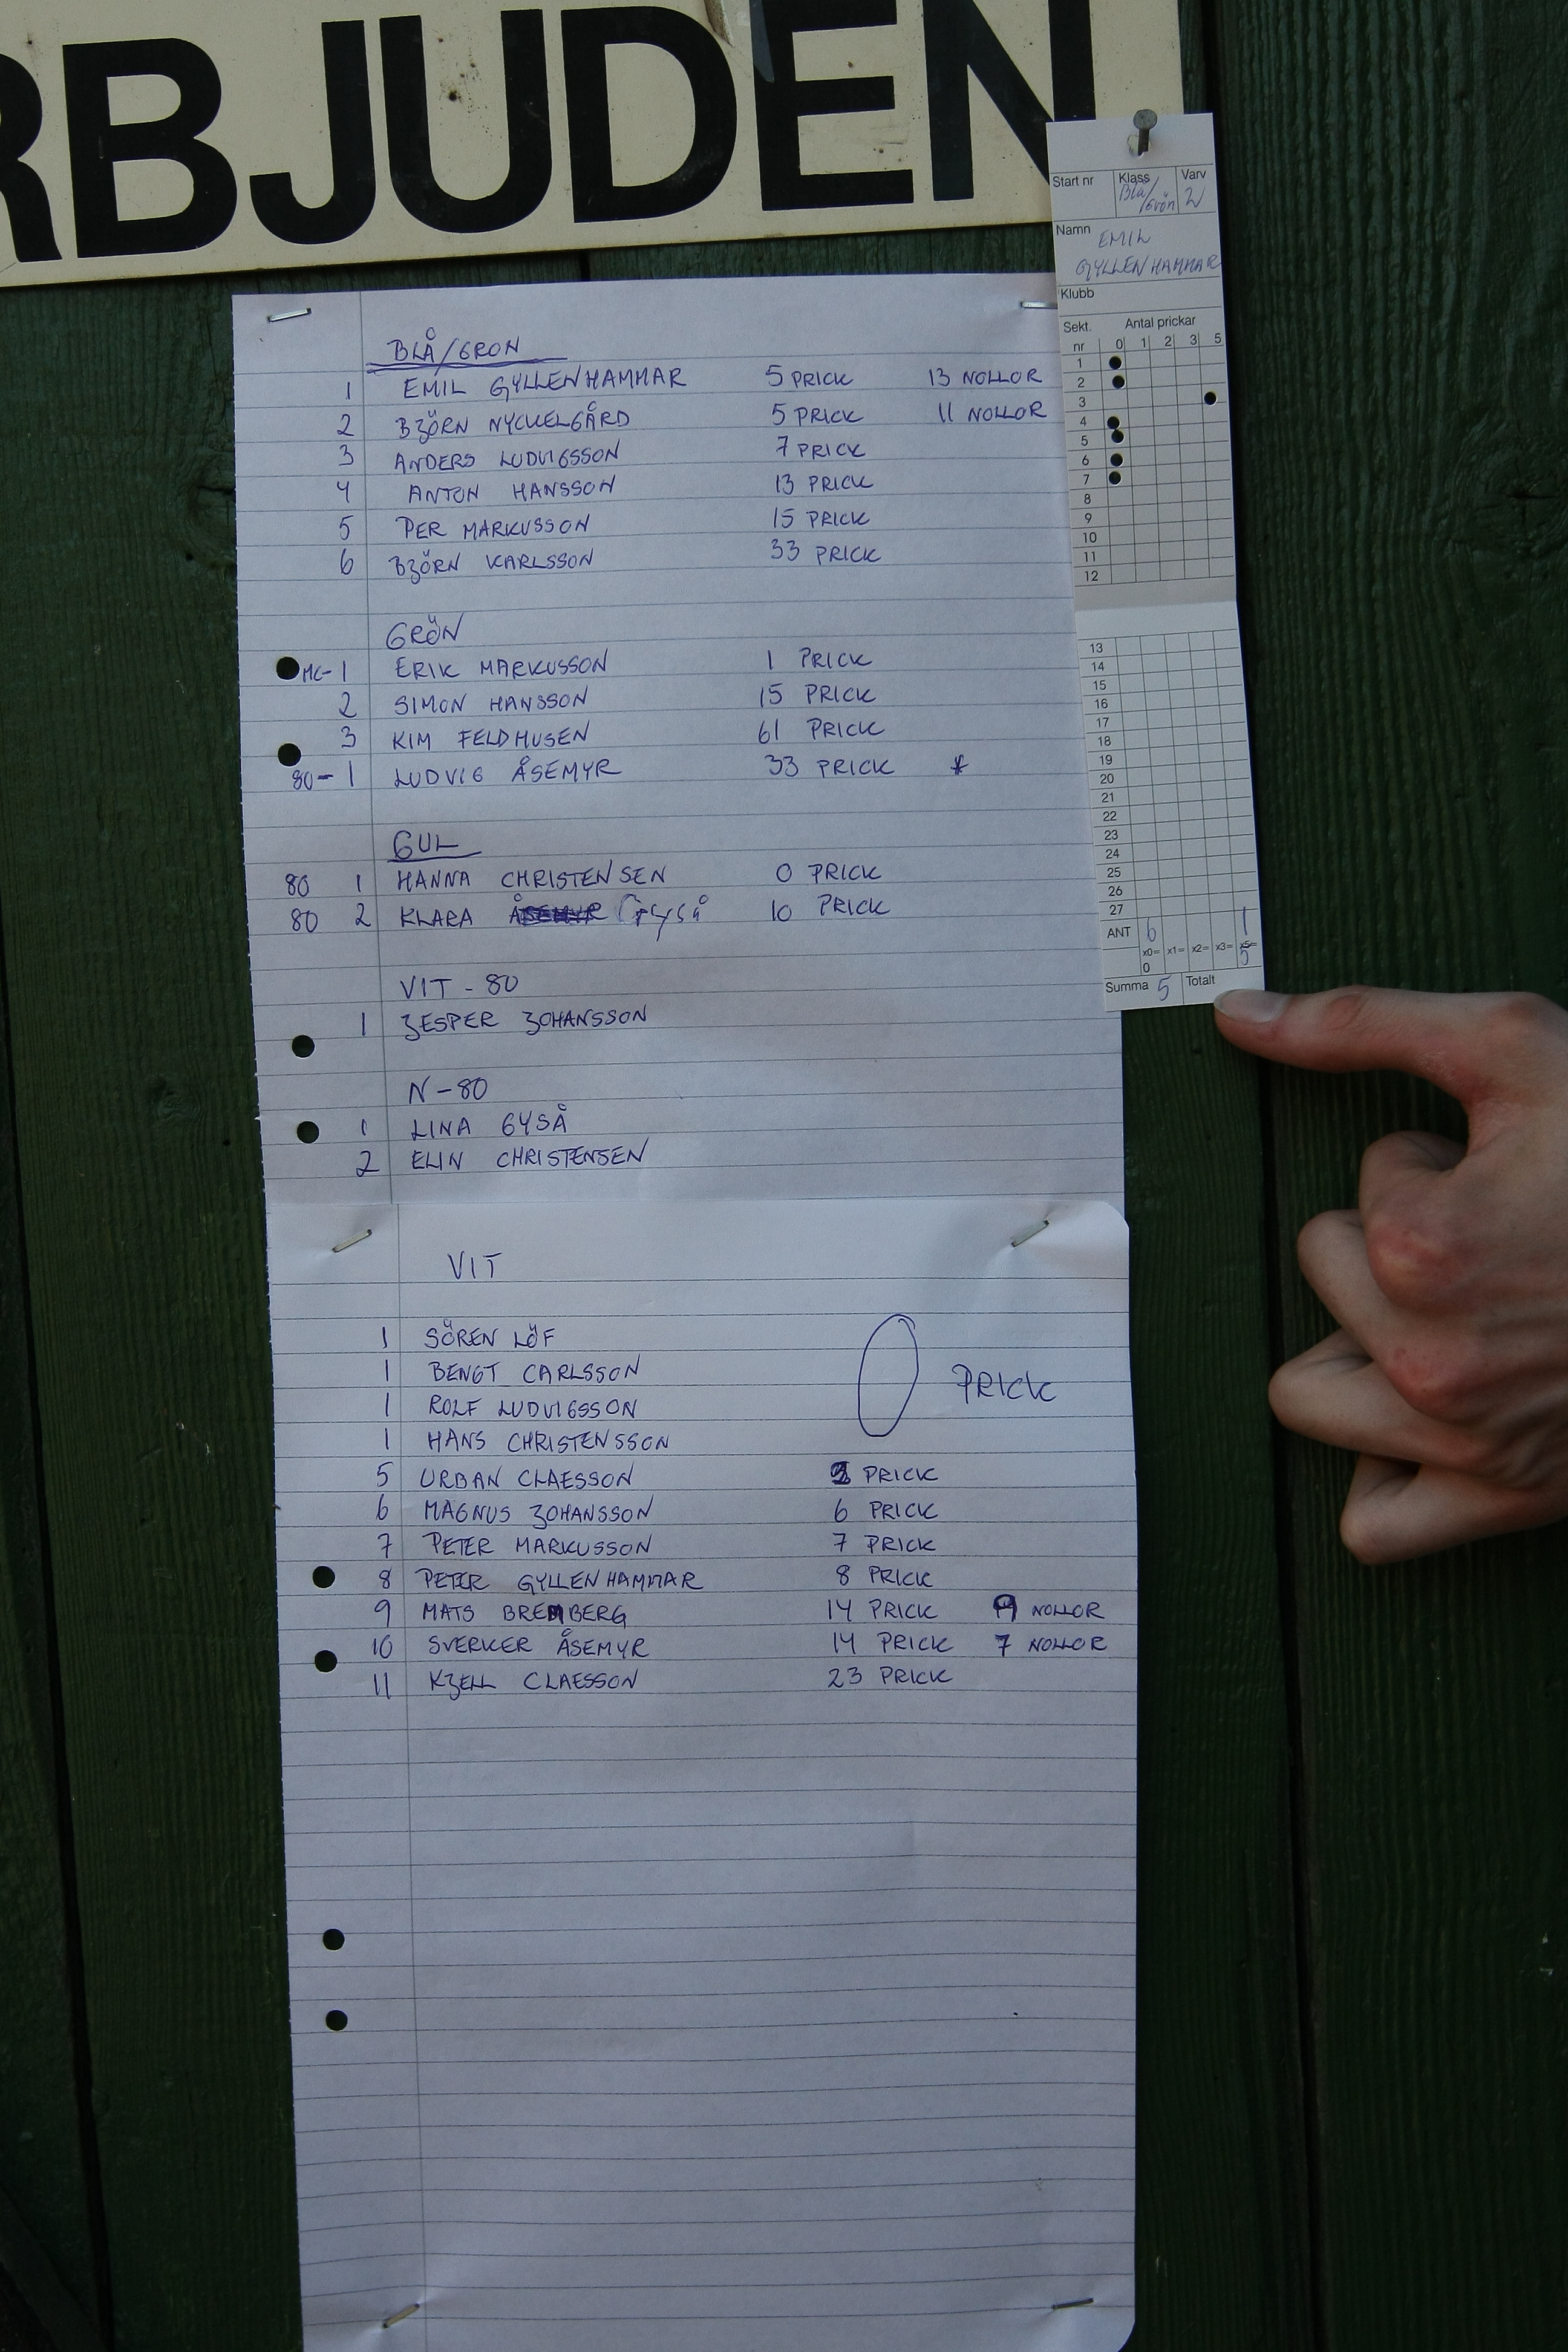 RBJUDEN
BLÅ/GRÖN
1 EMIL GYLLENHAMMAR 5 PRICK 13 NOLLOR
2 BJÖRN NYCKELGÅRD 5 PRICK 11 NOLLOR
3 ANDERS LUDVIGSSON 7 PRICK
4 ANTON HANSSON 13 PRICK
5 PER MARKUSSON 15 PRICK
6 BJÖRN KARLSSON 33 PRICK
GRÖN
MC- 1 ERIK MARKUSSON 1 PRICK
2 SIMON HANSSON 15 PRICK
3 KIM FELDHUSEN 61 PRICK
80- 1 LUDVIG ÅSEMYR 33 PRICK *
GUL
80 1 HANNA CHRISTENSEN 0 PRICK
80 2 KLARA 10 PRICK
VIT - 80
1 JESPER JOHANSSON
N-80
1 LINA GYSÅ
2 ELIN CHRISTENSEN
VIT
1 SÖREN LÖF
1 BENGT CARLSSON
0 PRICK
1 ROLF LUDVIGSSON
1 HANS CHRISTENSSON
5 URBAN CLAESSON PRICK
6 MAGNUS JOHANSSON 6 PRICK
7 PETER MARKUSSON 7 PRICK
8 PETER GYLLENHAMMAR 8 PRICK
9 MATS BREMBERG 14 PRICK 9 NOLLOR
10 SVERKER ÅSEMYR 14 PRICK 7 NOLLOR
11 KJELL CLAESSON 23 PRICK
Start nr Klass Varv
Blå/
/Grön 2
Namn EMIL
GYLLENHAMMAR
Klubb
Sekt. Antal prickar
nr 0 1 2 3 5
1
2
3
4
5
6
7
8
9
10
11
12
13
14
15
16
17
18
19
20
21
22
23
24
25
26
27
ANT 6 1
x0= x1= x2= x3= x5=
0 5
Summa 5 Totalt